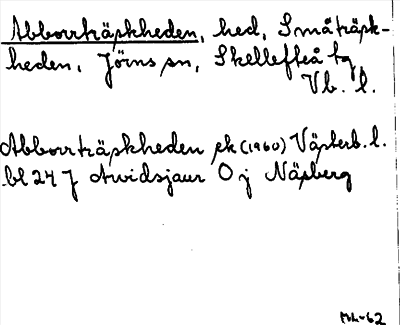 Abborrträskheden, hed, Småträsk-
heden, Jörns sn, Skellefteå tg,
Vb. l.
Abborrträskheden ek (1960) Västerb. l.
bl 24 J Arvidsjaur O j Näsberg
ML-62